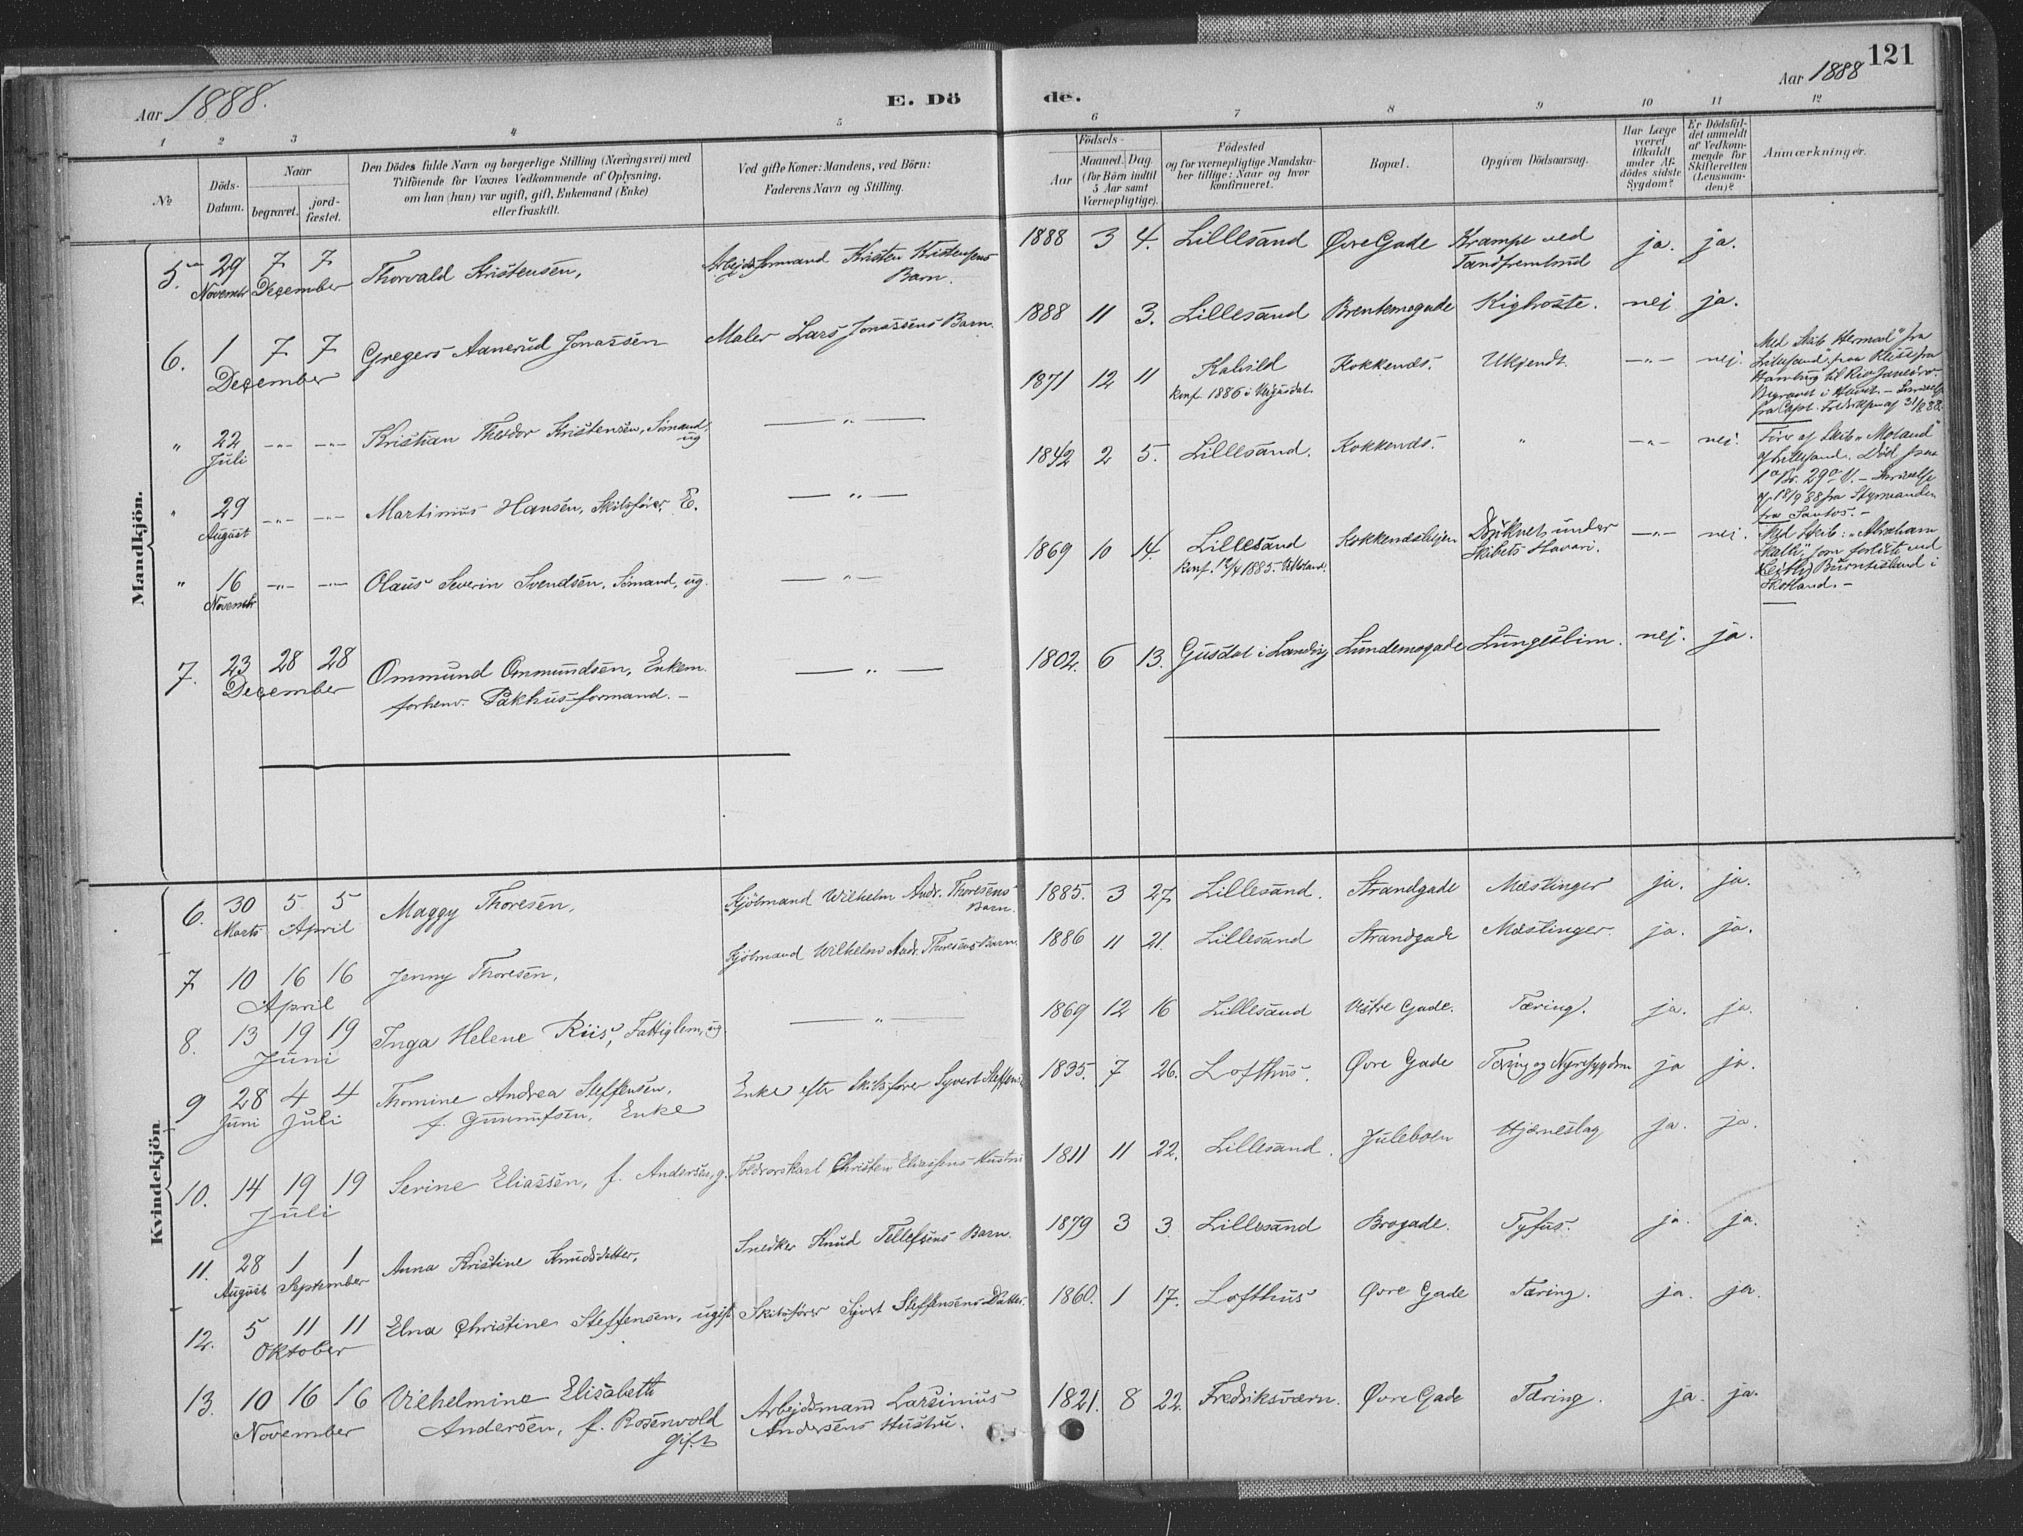 Aar 1888.
E. Dö
de.
Aar 1888
121
1 2 3 4 5
6 7 8 9 10 11 12
No
Döds-
Datum.
Naar
begravet.
jord-
fæstet.
Den Dödes fulde Navn og borgerlige Stilling (Næringsvei) med
Tilföiende for Voxnes Vedkommende af Oplysning,
om han (hun) var ugift, gift, Enkemand (Enke)
eller fraskilt.
Ved gifte Koner: Mandens, ved Börn:
Faderens Navn og Stilling.
Födsels-
Aar
Maaned. Dag.
(for Börn indtil
5 Aar samt
Værnepligtige).
Födested
og for værnepligtige Mandska-
ber tillige: Naar og hvor
konfirmeret.
Bopæl.
Opgiven Dödsaarsag.
Har Læge
været
tilkaldt
under Af-
dödes sidste
Sygdom?
Er Dödsfal-
det anmeldt
af Vedkom-
mende for
Skifteretten
(Lensman-
den)?
Anmærkninger.
Mandkjön.
5. 29 7 7 Thorvald Kristensen, Arbejdsformand Kristen Kristensens 1888 3 4. Lillesand Øvre Gade Krampe ved ja. ja.
Novembr December Barn. Tandfrembrud
6. 1 7 7 Gregers Aanerud Jonassen Maler Lars Jonassens Barn. 1888 11 3. Lillesand Brentemogade Kighoste. nej ja.
December
" 22 -"- -"- Kristian Theodor Kristensen, Sömand, — " — 1871 12 11 Kalvild Kokkenes. Ukjendt. -"- nej.
Juli ug Konf. 1886 i
Med Skib Hermod" fra
Lillesand, paa Rejse fra
Hamburg til Rio Janeiro.
Begravet i Havet. -
fra Capt. 31/8 88.
" 29 -"- -"- Martinius Hansen, Skibsfører, E. — " — 1842 2 5. Lillesand. Kokkenes. " -"- nej.
August
Förer af Skib "Moland"
af Lillesand. Död paa
fra Styrmanden
fra Santos. -
" 16 -"- -"- Olaus Severin Svendsen, Sömand, ug. — " — 1869 10 14. Lillesand Druknet under -"- nej.
Novembr Konf. 1885 Skibets Havari.
Med Skib: "Abraham
som forliste ved
Burntisland i
Skotland. -
7. 23 28 28 Ommund Ommundsen, Enkem. — " — 1802. 6 13. Gusdal i Landvig Lundemogade Lungeslim. nej. ja.
December forhenv. Pakhusformand. -
Kvindekjön
6. 30 5 5 Maggy Thoresen, Kjölmand Wilhelm Andr. Thoresens 1885. 3 27 Lillesand. Strandgade Mæslinger ja. ja.
Marts April Barn.
7 10 16 16 Jenny Thoresen, Kjölmand Wilhelm Andr. Thoresens Barn. 1886 11 21. Lillesand Strandgade Mæslinger ja. ja.
April
8. 13 19 19 Inga Helene Riis, Fattiglem, ug. — " — 1869 12 16 Lillesand Vestre Gade. Tæring. ja. ja.
Juni
9 28 4 4 Thomine Andrea Steffensen, Enke efter Skibsfører Syvert Steffens. 1835. 7 26. Lofthus. Øvre Gade Tæring og Nyresygdom ja ja.
Juni Juli f. Gunnufsen, Enke
10. 14 19 19 Serine Eliassen, f. Andersen, g. Toldrorskarl Christen Eliassens Hustru 1811 11 22. Lillesand. Juleboen Hjærneslag ja. ja.
Juli
11. 28 1 1 Anna Kristine Knudsdatter, Snedker Knud Tellefsens Barn. 1879 3 3. Lillesand Brogade. Tyfus. ja. ja.
August September
12. 5 11 11 Elna Christine Steffensen, ugift Skibsfører Syvert Steffensens Datter. 1860. 1 17. Lofthus Øvre Gade Tæring. ja. ja.
Oktober
13. 10 16 16 Vilhelmine Elisabeth Arbejdsmand Larsinius 1821. 8 22. Fredriksværn. Øvre Gade Tæring. ja. ja.
November Andersen, f. Rosenvold Andersens Hustru.
gift